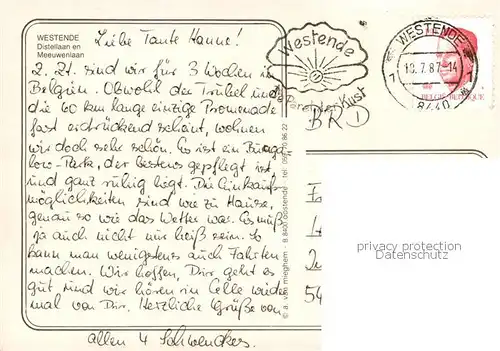 WESTENDE
Distellaan en
Meeuwenlaan
Liebe Tante Hanne!
Z. Zt. sind wir für 3 Wochen in
Belgien. Obwohl der Trubel und
die 60 km lange einzige Promenade
fast erdrückend scheint, wohnen
wir doch sehr schön. Es ist ein Bunga-
low-Park, der bestens gepflegt ist,
und ganz ruhig liegt. Die Einkaufs-
möglichkeiten sind wie zu Hause,
genau so wie das Wetter war. Es muß
ja auch nicht nur heiß sein. So
kann man wenigstens auch Fahrten
machen. Wir hoffen, Dir geht es
gut und wir hören in Celle wieder
mal von Dir. Herzliche Grüße von
allen 4 Schwenckes.
© a. van mieghem - B 8400 oostende - tel. 059 70 86 22
Westende
Parel der Kust
WESTENDE
18.7.87-14
8440
BELGIE BELGIQUE
BRD
54
privacy protection
Datenschutz